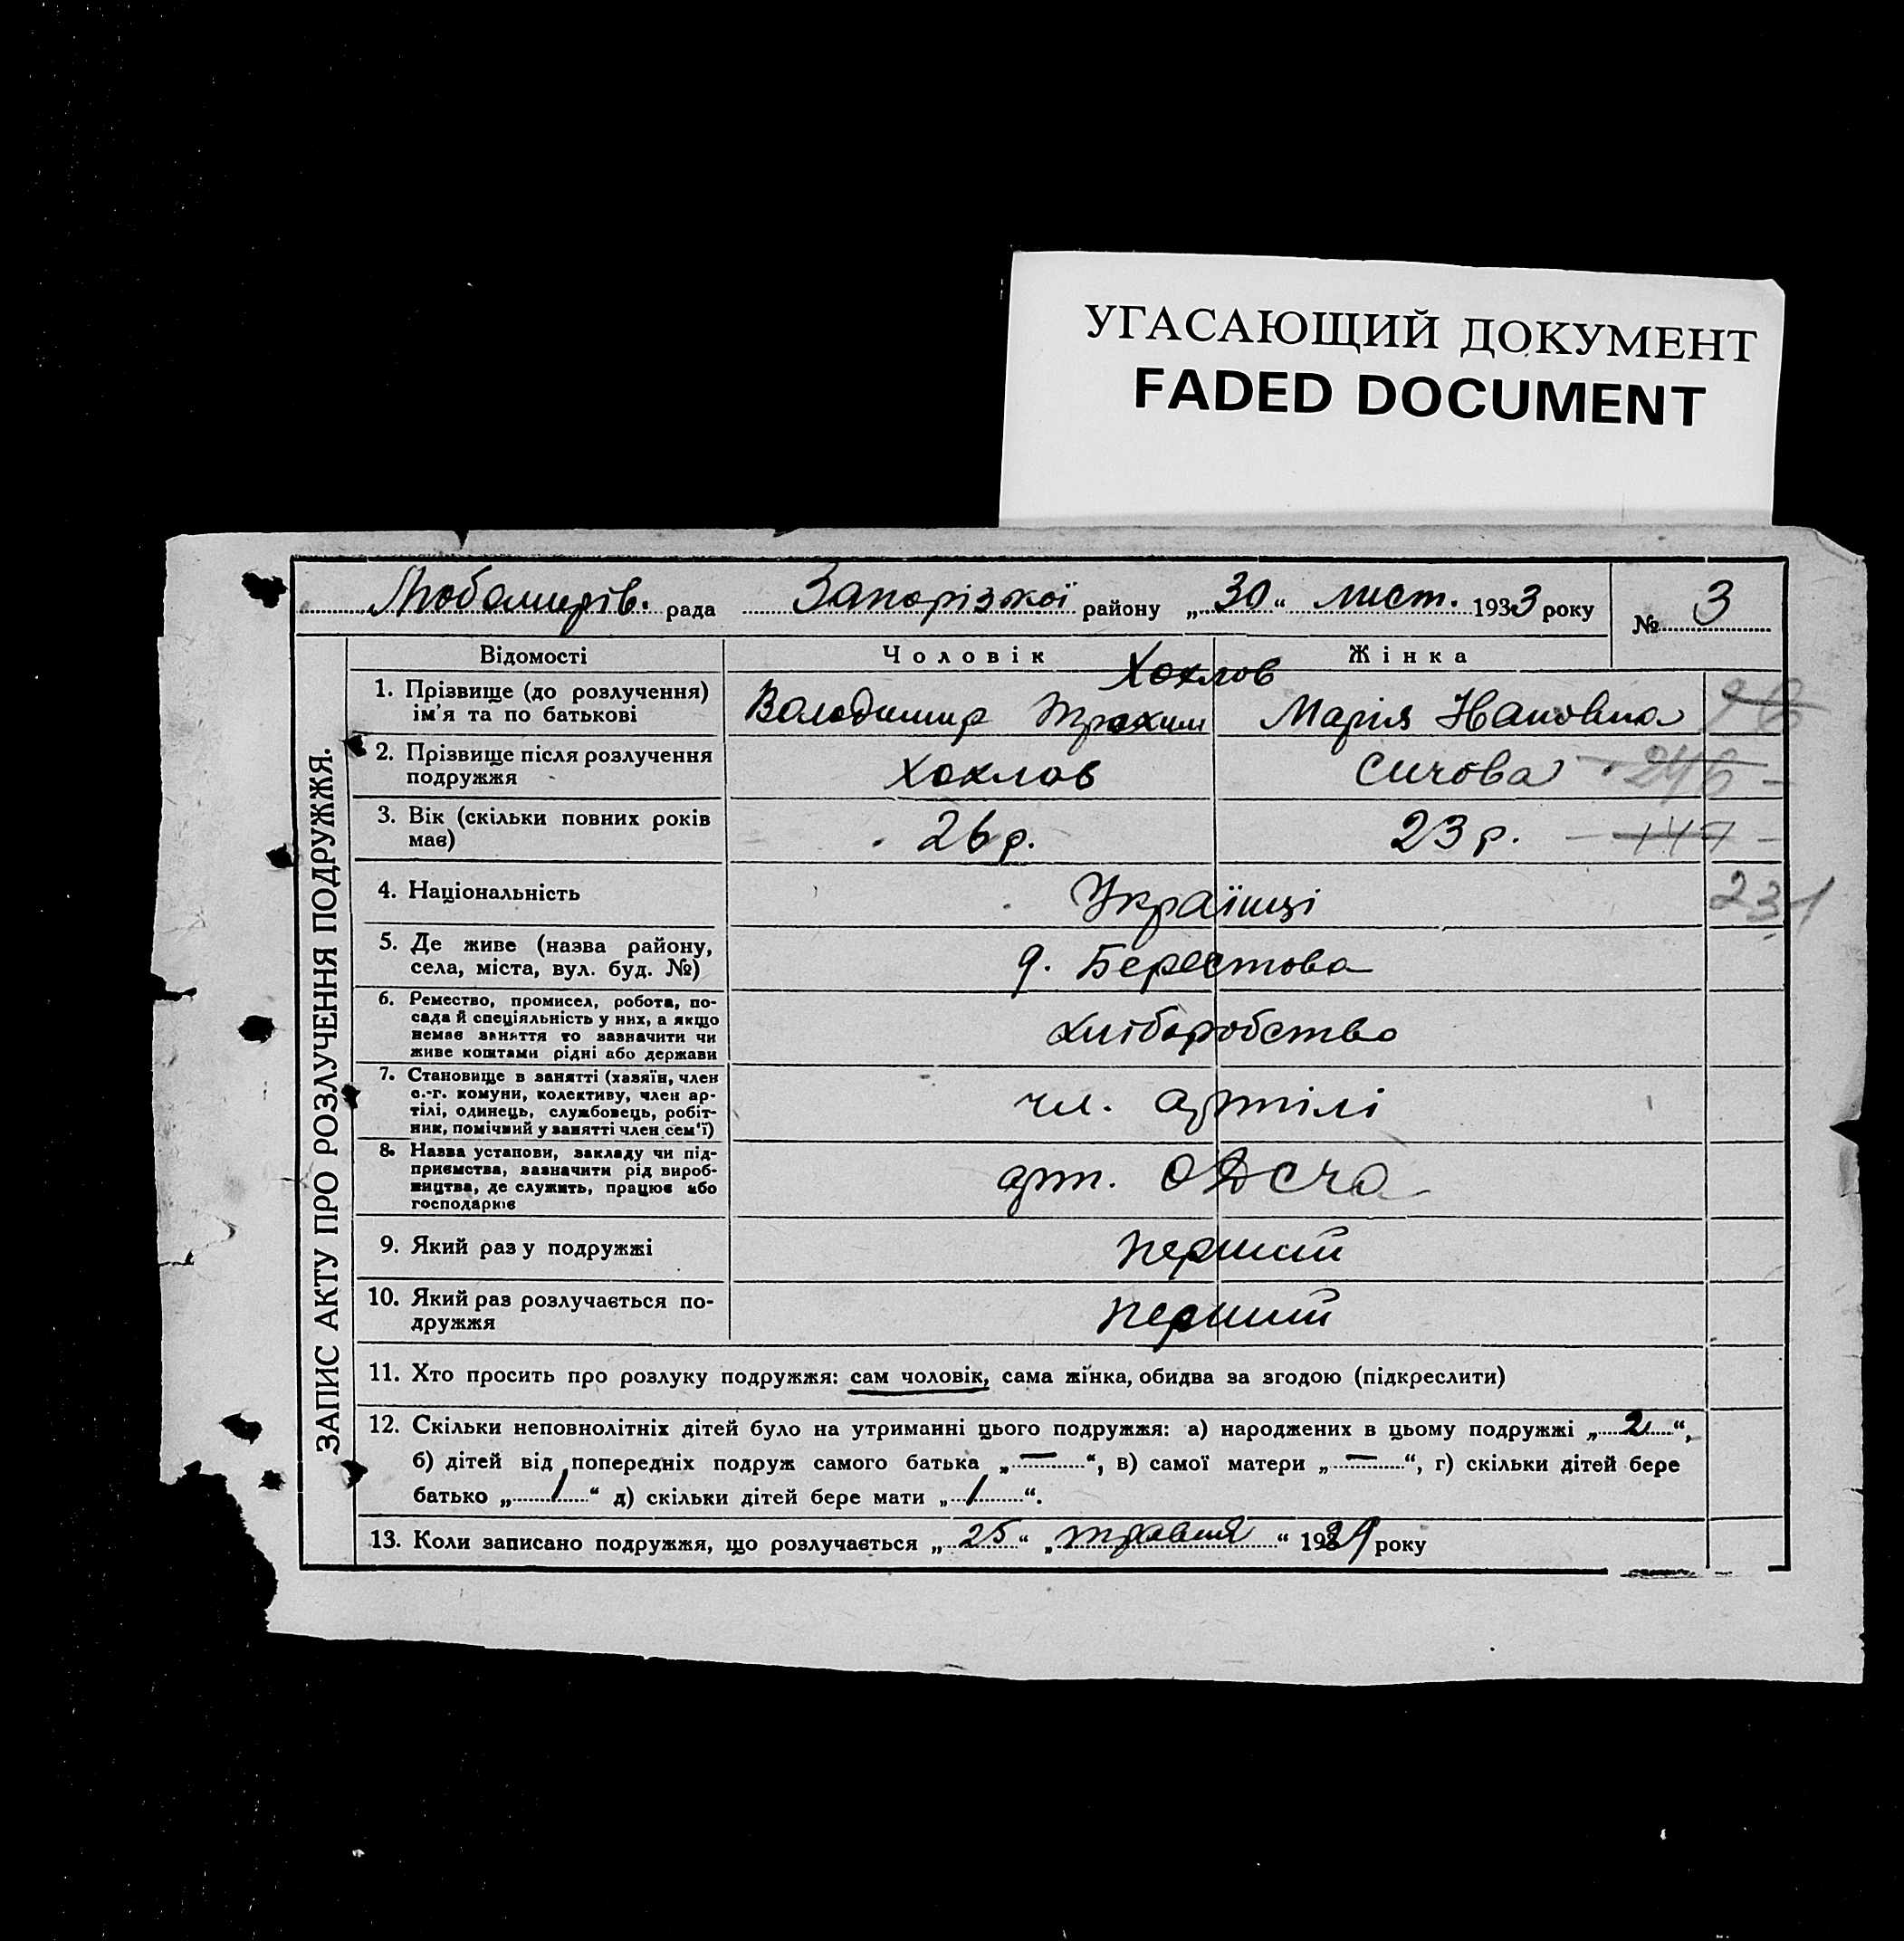 УГАСАЮЩИЙ ДОКУМЕНТ
FADED DOCUMENT
Любомирів. рада Запорізької району „30“ лист. 1933 року № 3
ЗАПИС АКТУ ПРО РОЗЛУЧЕННЯ ПОДРУЖЖЯ.
Відомості Чоловік Жінка
Хохлов
1. Прізвище (до розлучення) ім'я та по батькові Володимир Трохим Марія
2. Прізвище після розлучення подружжя Хохлов Сичова 246
3. Вік (скільки повних років має) 26 р. 23 р. 147
4. Національність Українці 231
5. Де живе (назва району, села, міста, вул. буд. №) д. Берестова
6. Ремество, промисел, робота, посада й спеціяльність у них, а якщо немає заняття то зазначити чи живе коштами рідні або держави хліборобство
7. Становище в занятті (хазяїн, член с.-г. комуни, колективу, член артілі, одинець, службовець, робітник, помічний у занятті член сем'ї) чл. артілі
8. Назва установи, закладу чи підприємства, зазначити рід виробництва, де служить, працює або господарює арт.
9. Який раз у подружжі перший
10. Який раз розлучається подружжя перший
11. Хто просить про розлуку подружжя: сам чоловік, сама жінка, обидва за згодою (підкреслити)
12. Скільки неповнолітніх дітей було на утриманні цього подружжя: а) народжених в цьому подружжі „2“,
б) дітей від попередніх подруж самого батька „—“, в) самої матери „—“, г) скільки дітей бере
батько „1“ д) скільки дітей бере мати „1“.
13. Коли записано подружжя, що розлучається „25“ „травня“ 1929 року